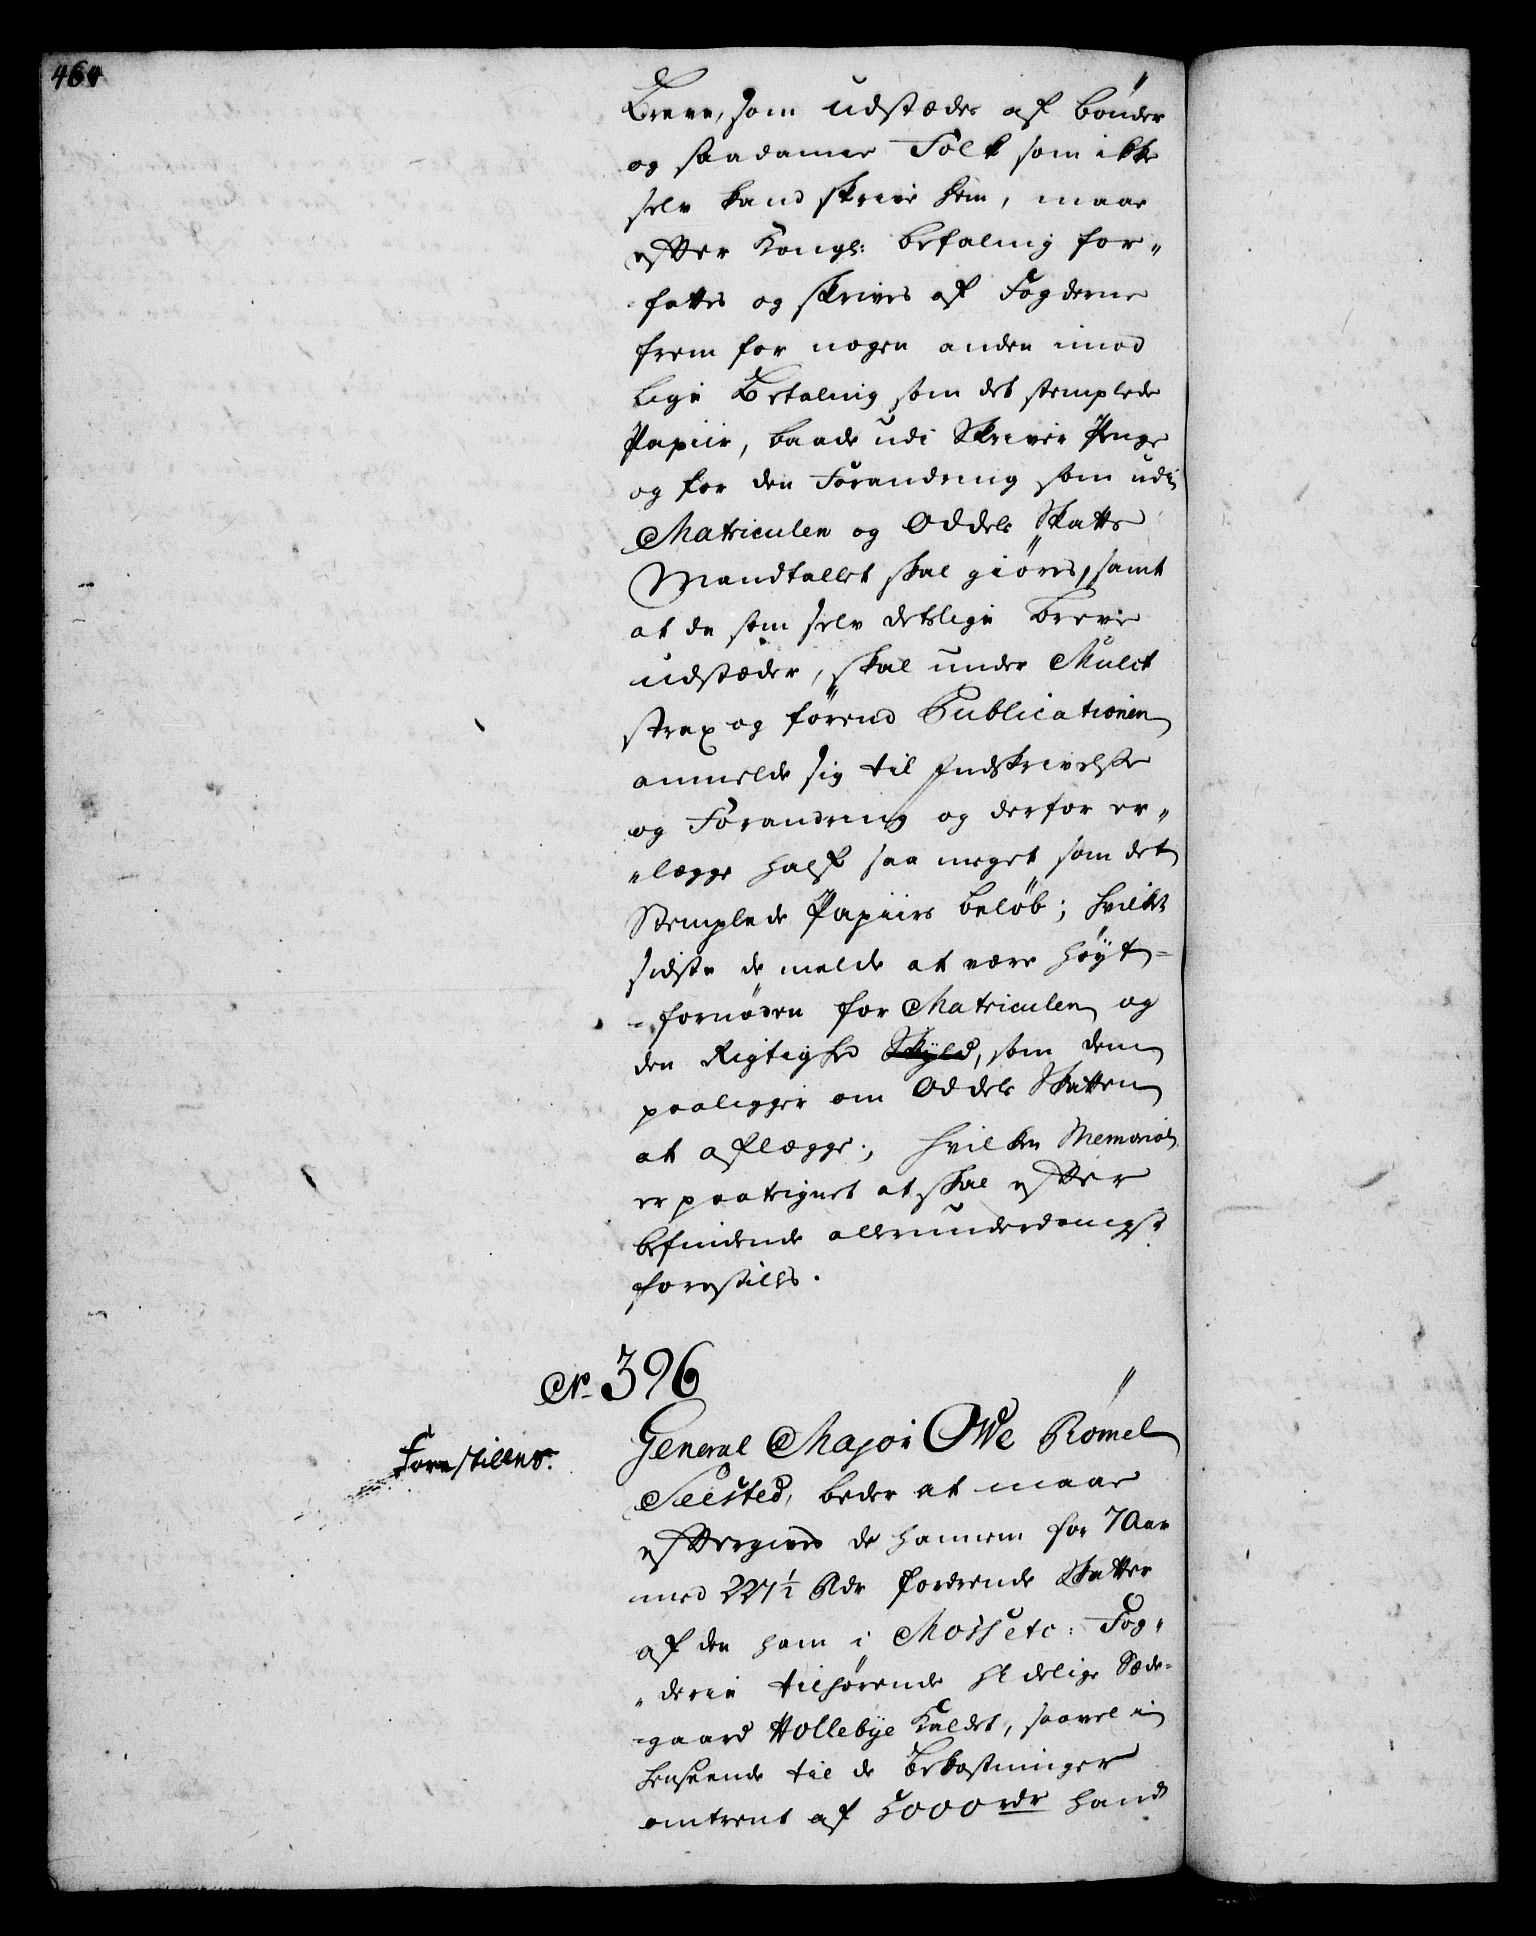 464
Breve, som udstædes af bønder
og saadanne Folk som ikke
selv kand skrive dem, maae
efter Kongl: befaling for„
fattes og skrives af Fogderne
frem for nogen anden imod
lige Betaling som det stemplede
Papiir, baade udi Skriver Penge
og for den Forandring som udi
Matriculen og Oddels Skatte
Mandtallet skal giøres, samt
at de som selv deslige breve
udstæder, skal under Mulct
strax og førend Publicationen
anmelde sig til Indskrivelse
og Forandring og derfor er„
„lægge half saa meget som det
Stemplede Papiirs beløb; hvilket
sidste de melde at være høyt=
=fornøden for Matriculen og
den Rigtighed Skyld, som dem
paaligger om Oddels Skatten
at aflægge; hvilken Memorial
er paategnet at skal efter
befindende allerunderdanigst
forestilles.
No 396
Forestilles.
General Major Owe Römel
Seested, beder at maae
eftergives de hannem for 7 Aar
med 227½ Rdr fordrende Skatter
af den ham i Moss etc: Fog„
„derie tilhørende adelige Sæde=
=gaard Hollebye kaldet, saavel i
henseende til de bekostninger
omtrent af 5000 rdr hand